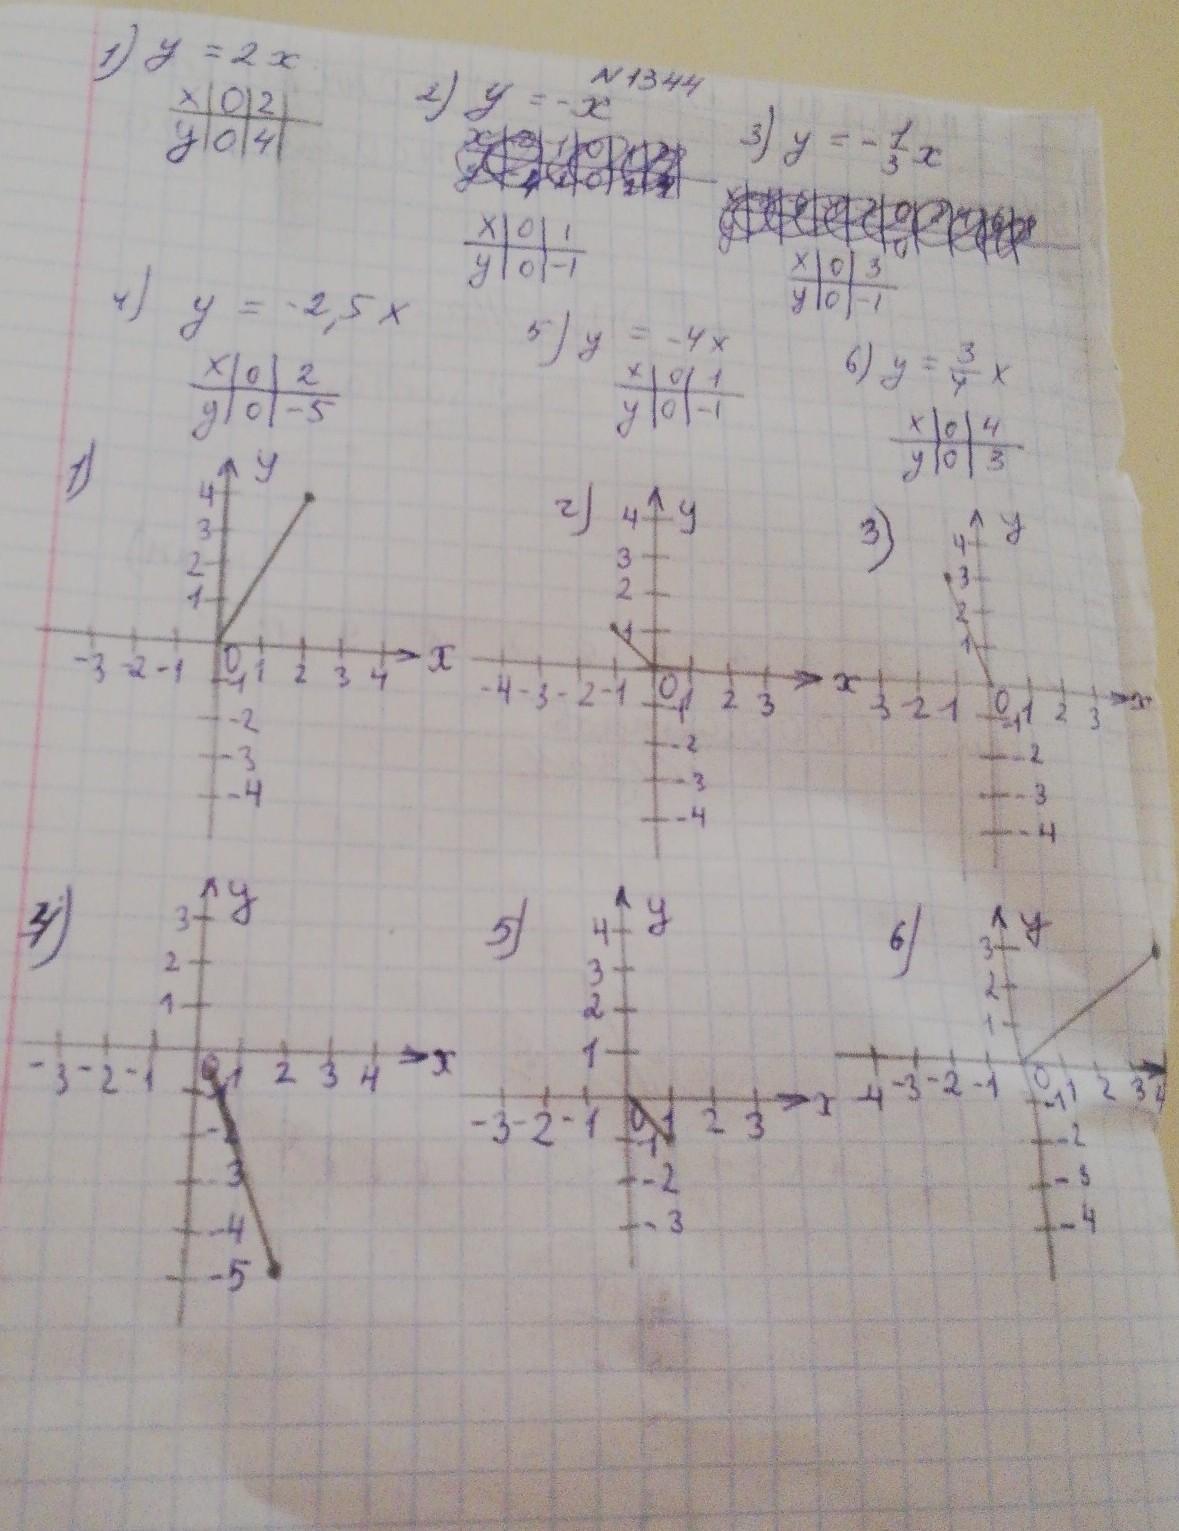 N 1344
1) y = 2x
x | 0 | 2
y | 0 | 4
2) y = -x
x | 0 | 1
y | 0 | -1
3) y = -1/3 x
x | 0 | 3
y | 0 | -1
4) y = -2,5x
x | 0 | 2
y | 0 | -5
5) y = -4x
x | 0 | 1
y | 0 | -1
6) y = 3/4 x
x | 0 | 4
y | 0 | 3
1)
y
4
3
2
1
-3 -2 -1 0 1 2 3 4 x
-1
-2
-3
-4
2)
y
4
3
2
1
-4 -3 -2 -1 0 1 2 3 x
-1
-2
-3
-4
3)
y
4
3
2
1
3 -2 -1 0 1 2 3 x
-1
-2
-3
-4
4)
y
3
2
1
-3 -2 -1 0 1 2 3 4 x
-2
3
-4
-5
5)
y
4
3
2
1
-3 -2 -1 0 1 2 3 x
-1
-2
-3
6)
y
3
2
1
-4 -3 -2 -1 0 1 2 3 4
-1
-2
-3
-4